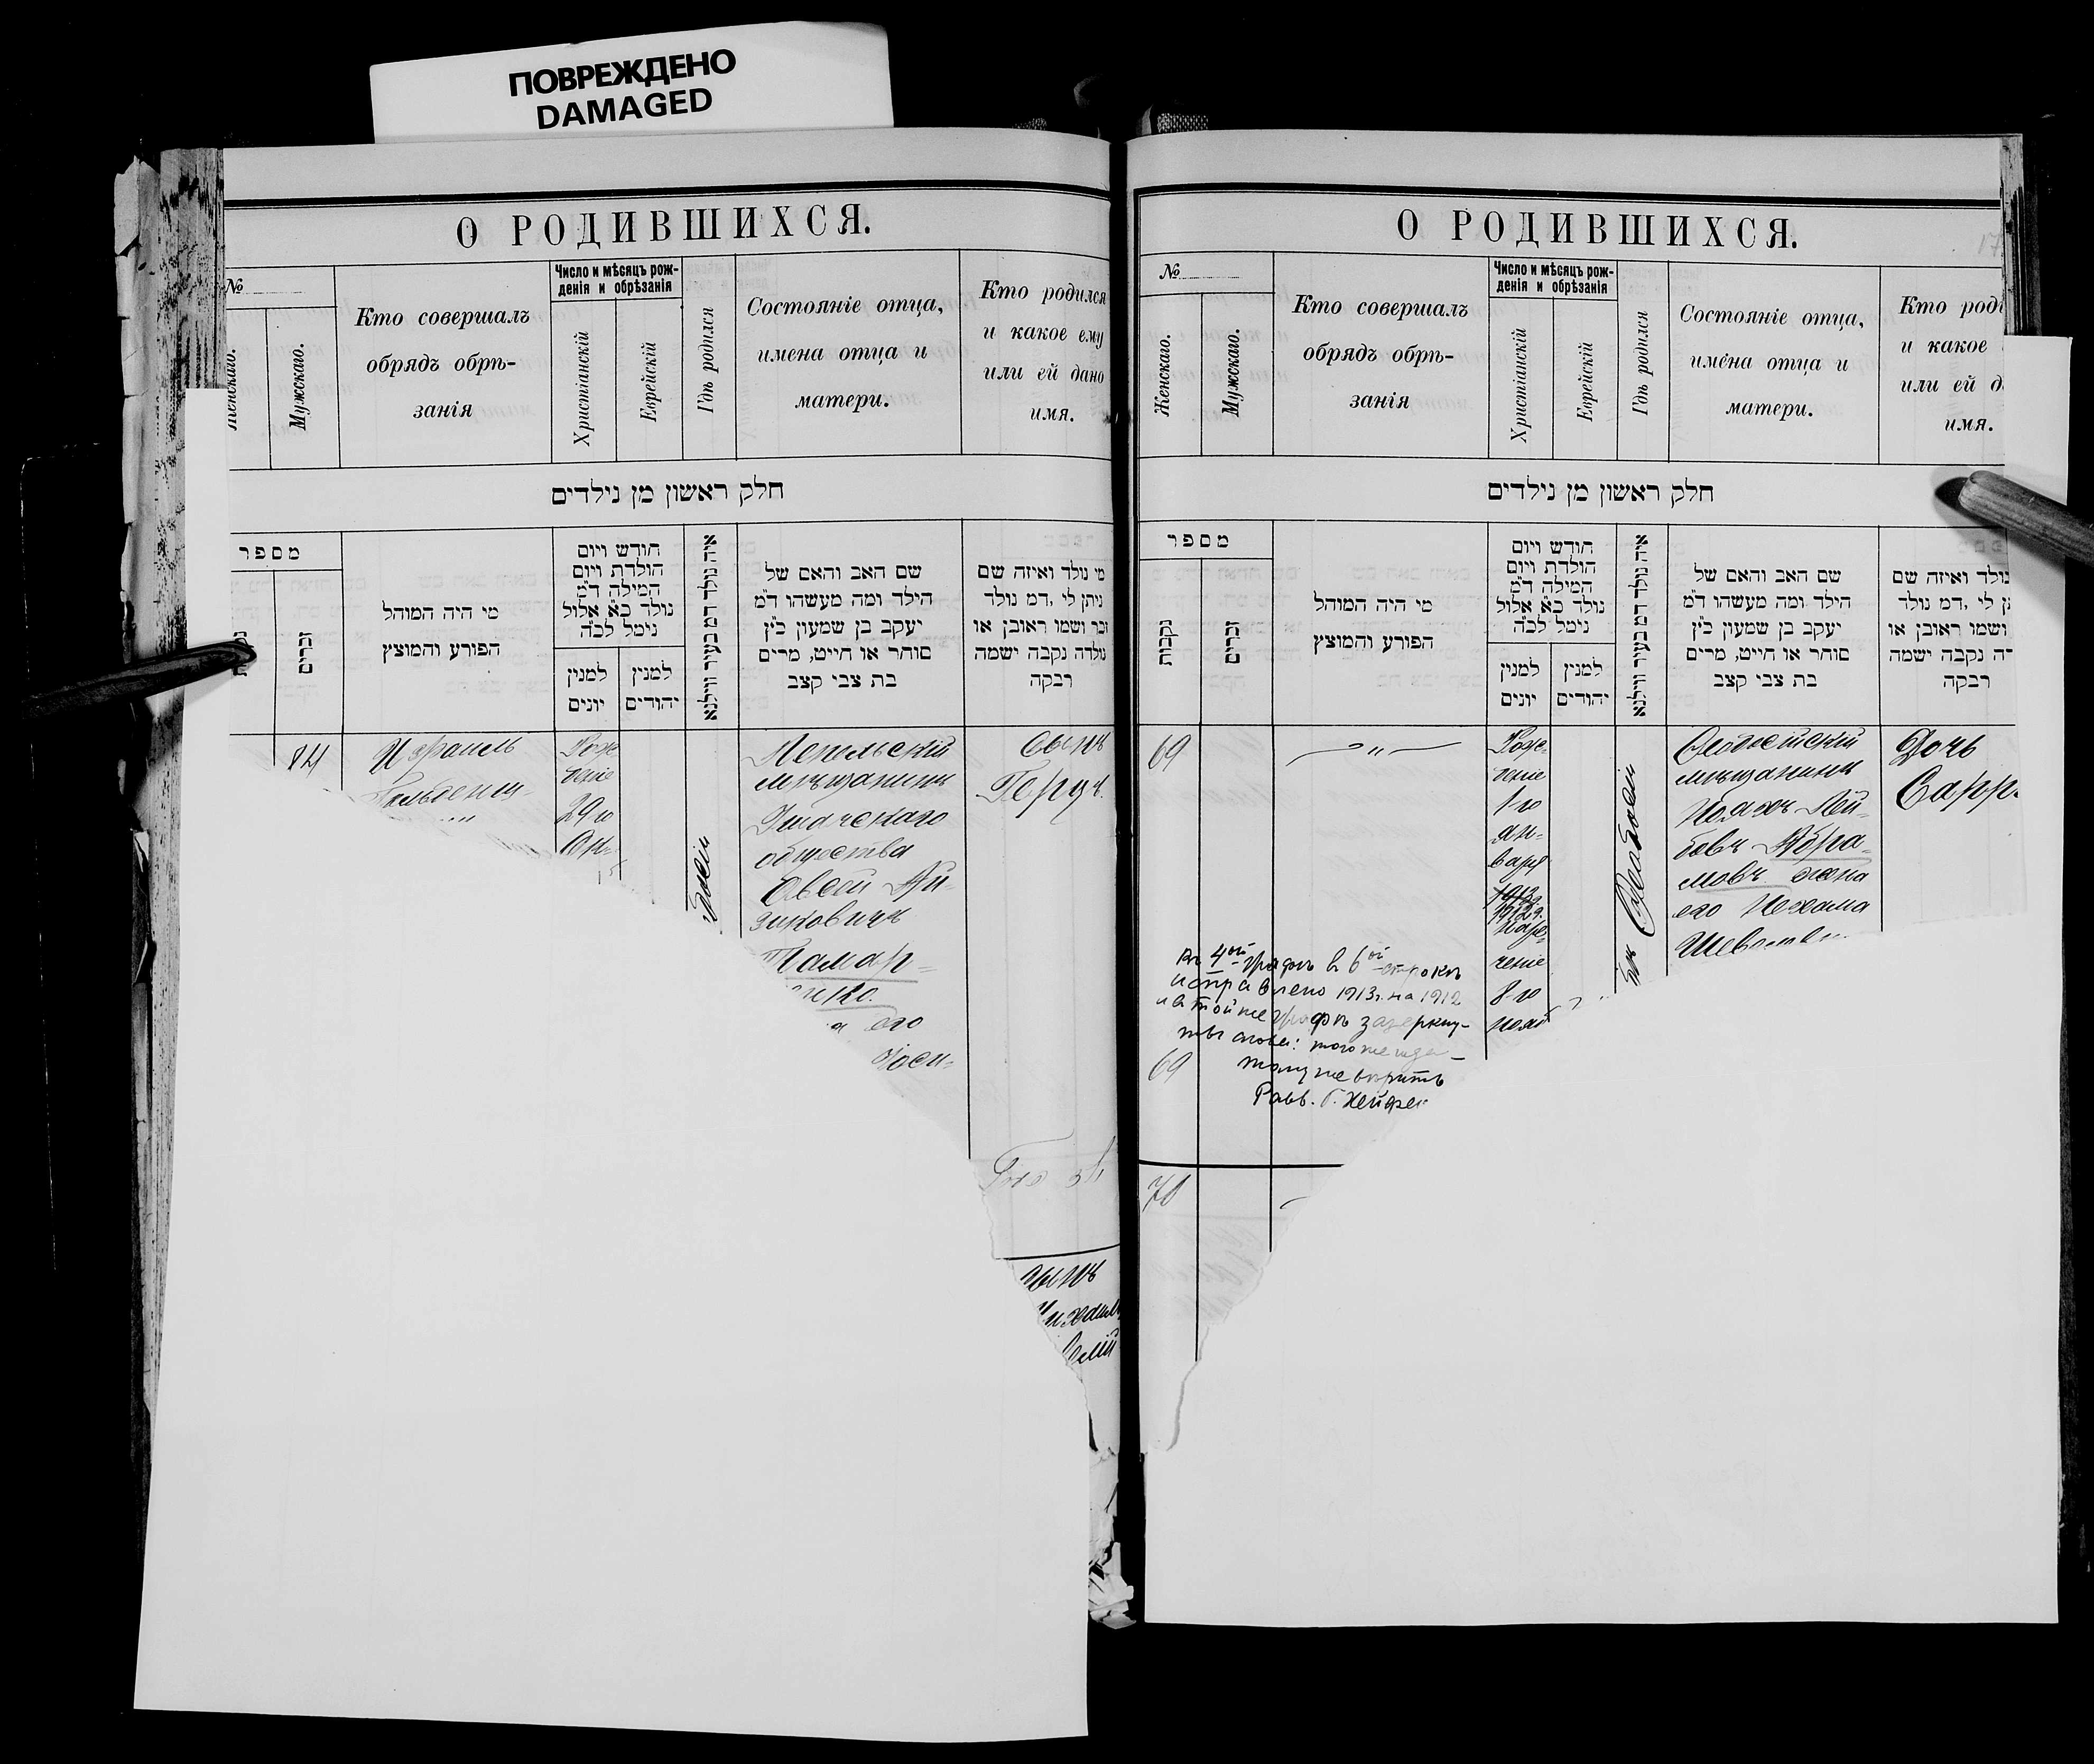 ПОВРЕЖДЕНО
DAMAGED
О РОДИВШИХСЯ.
№
Мужскаго.
Кто совершалъ
обрядъ обрѣ-
занія
Число и мѣсяцъ рож-
денія и обрѣзанія
Христіанскій
Еврейскій
Гдѣ родился
Состояніе отца,
имена отца и
матери.
Кто родился
и какое ему
или ей дано
имя.
חלק ראשון מן נילדים
מספר
זכרים
מי היה המוהל
הפורע והמוצץ
חודש ויום
הולדת ויום
המילה ד"מ
נולד כ"א אלול
נימל לכ"ה
למנין
יונים
למנין
יהודים
איה נולד דמ בעיר ווילנא
שם האב והאם של
הילד ומה מעשהו ד"מ
יעקב בן שמעון כ"ץ
סוחר או חייט, מרים
בת צבי קצב
מי נולד ואיזה שם
ניתן לי, דמ נולד
זכר ושמו ראובן או
נולדה נקבה ישמה
רבקה
84
Израиль
Рож
деніе
29 го
Лепельскій
мѣщанинъ
Ушачскаго
общества
Овсей Ай-
зиковичъ
его
Сынъ
Герцъ
О РОДИВШИХСЯ.
17
№
Женскаго.
Мужскаго.
Кто совершалъ
обрядъ обрѣ-
занія
Число и мѣсяцъ рож-
денія и обрѣзанія
Христіанскій
Еврейскій
Гдѣ родился
Состояніе отца,
имена отца и
матери.
Кто
и какое
или ей
имя.
חלק ראשון מן נילדים
מספר
נקבות
זכרים
מי היה המוהל
הפורע והמוצץ
חודש ויום
הולדת ויום
המילה ד"מ
נולד כ"א אלול
נימל לכ"ה
למנין
יונים
למנין
יהודים
איה נולד דמ בעיר ווילנא
שם האב והאם של
הילד ומה מעשהו ד"מ
יעקב בן שמעון כ"ץ
סוחר או חייט, מרים
בת צבי קצב
נולד ואיזה שם
לי, דמ נולד
ושמו ראובן או
נקבה ישמה
רבקה
69
Рож-
деніе
1-го
Ян-
варя
1912 г.
Наре-
ченіе
8-го
Ѳеодосіи
Ѳеодосійскій
мѣщанинъ
Лей-
бовъ Абра-
мовъ жена
его Нехама
Дочь
Въ 4ой графѣ въ 6ой строкѣ
исправлено 1913 г. на 1912
и въ той же графѣ зачеркну-
ты слова: того же
69
тому же вѣрить
Равв. Г.
70